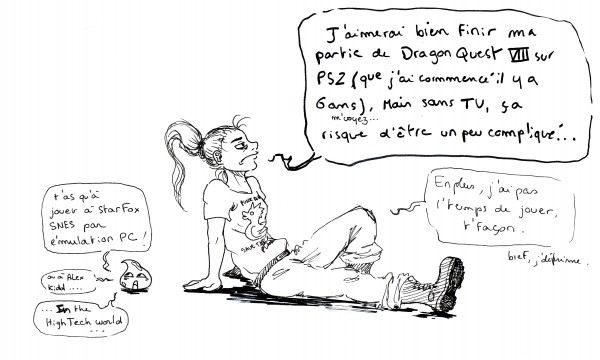 J'aimerai bien finir ma
partie de Dragon Quest VIII sur
PS2 (que j'ai commencé il y a
6 ans), Mais sans TV, ça
m'voyez...
risque d'être un peu compliqué...
t'as qu'à
jouer à StarFox
SNES par
émulation PC !
ou à Alex
Kidd ....
... In the
HighTech world
...
En plus, j'ai pas
l'temps de jouer,
t'façon.
bref, j'déprime.